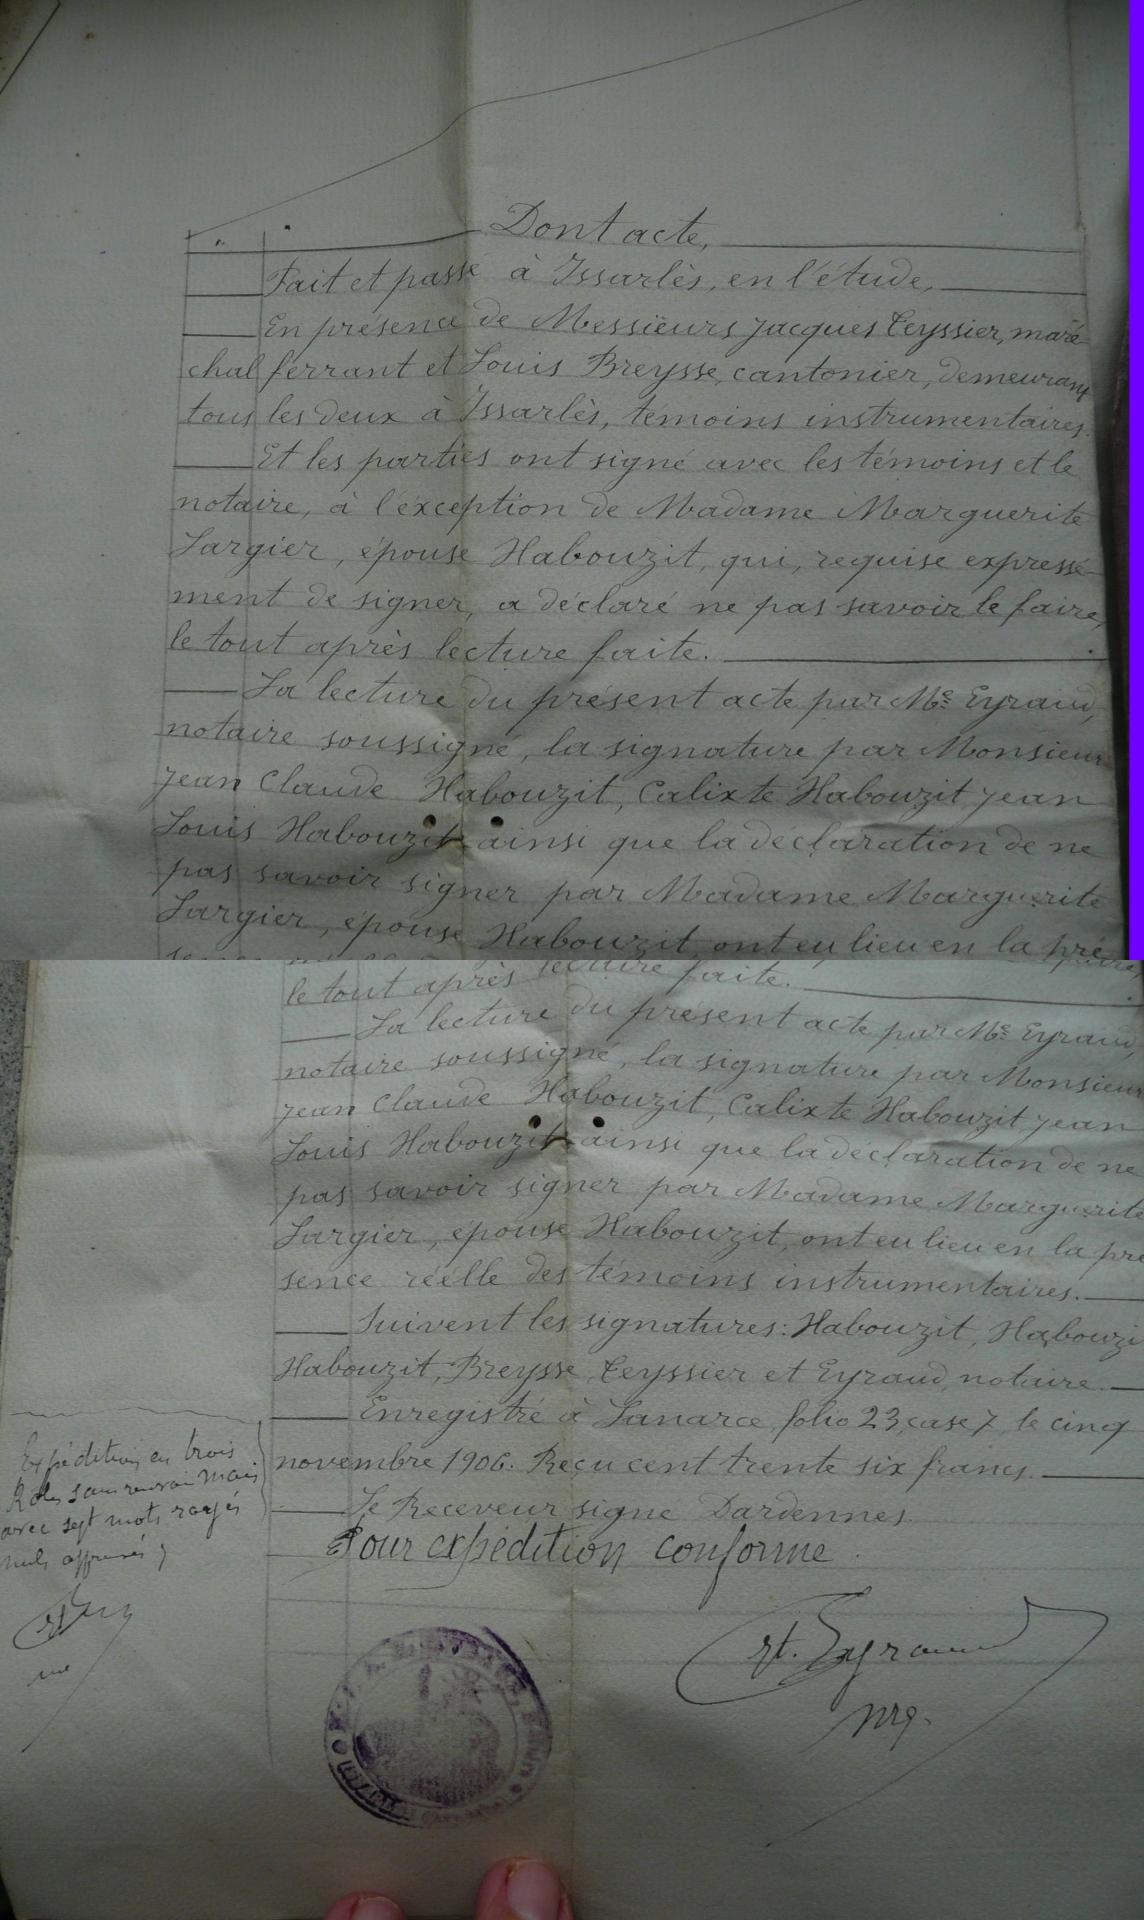 Dont acte,
Fait et passé à Issarlès, en l'étude,
En présence de Messieurs Jacques Teyssier, maré-
chal ferrant et Louis Breysse, cantonier, demeurant
tous les deux à Issarlès, témoins instrumentaires.
Et les parties ont signé avec les témoins et le
notaire, à l'éxception de Madame Marguerite
Largier, épouse Habouzit, qui, requise expressé-
ment de signer, a déclaré ne pas savoir le faire,
le tout après lecture faite.
La lecture du présent acte par Me Eyraud,
notaire soussigné, la signature par Monsieur
Jean Claude Habouzit, Calixte Habouzit Jean
Louis Habouzit ainsi que la déclaration de ne
pas savoir signer par Madame Marguerite
Largier, épouse Habouzit, ont eu lieu en la pré
le tout après lecture faite.
La lecture du présent acte par Me Eyraud,
notaire soussigné, la signature par Monsieur
Jean Claude Habouzit, Calixte Habouzit Jean
Louis Habouzit ainsi que la déclaration de ne
pas savoir signer par Madame Marguerite
Largier, épouse Habouzit, ont eu lieu en la pré
sence réelle des témoins instrumentaires.
Suivent les signatures: Habouzit, Habouzi
Habouzit, Breysse, Teyssier et Eyraud, notaire.
Enregistré à Lanarce, folio 23, case 7, le cinq
novembre 1906. Reçu cent trente six francs.
Le Receveur signé Dardennes.
Pour expédition conforme.
Expédition en trois
Rôles sans renvoi mais
avec sept mots rayés
nuls
Eyraud
nre.